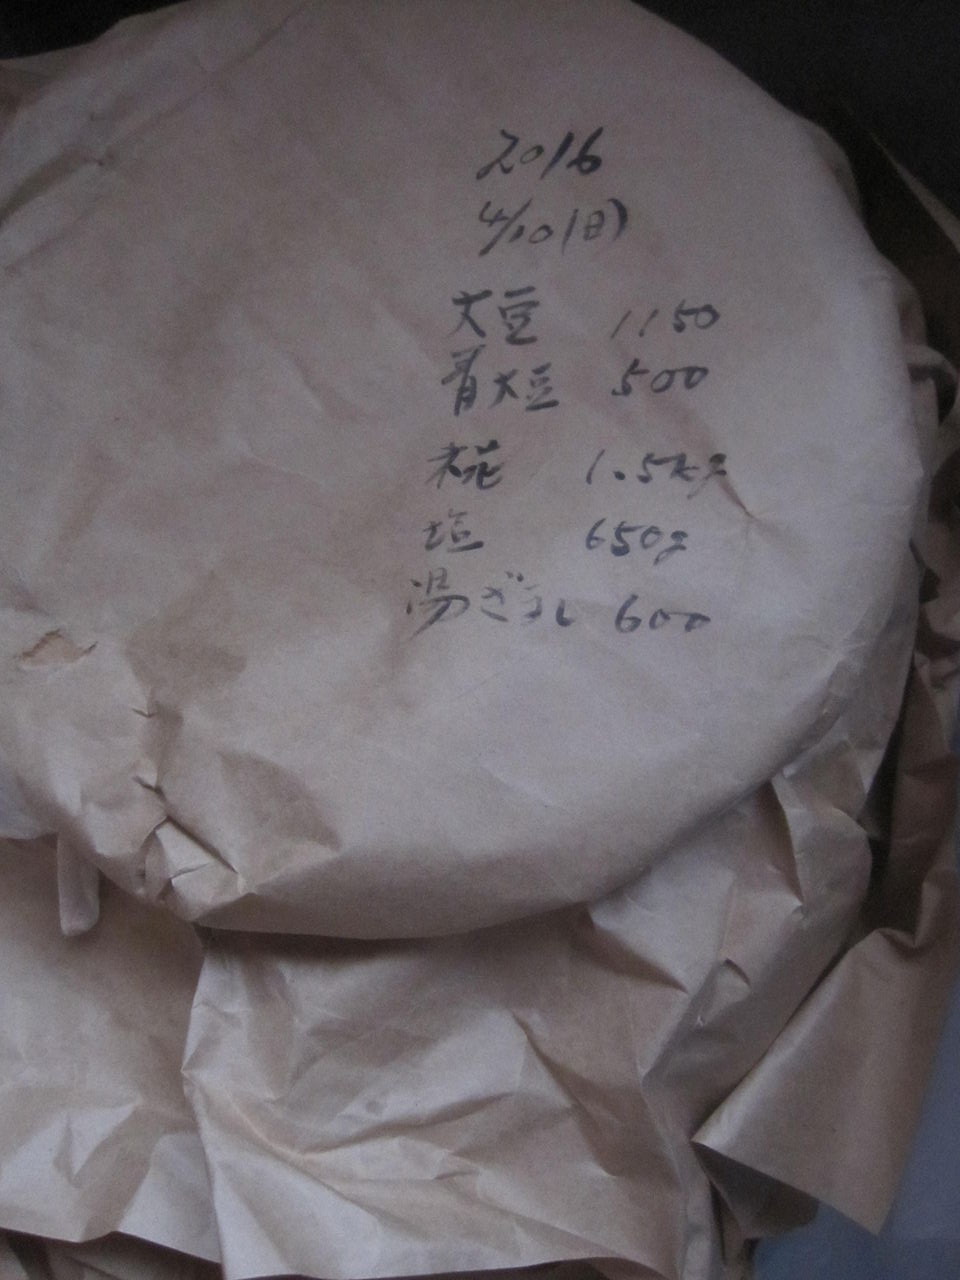 2016
4/10(日)
大豆 1150
青大豆 500
糀 1.5kg
塩 650g
湯ざまし 600